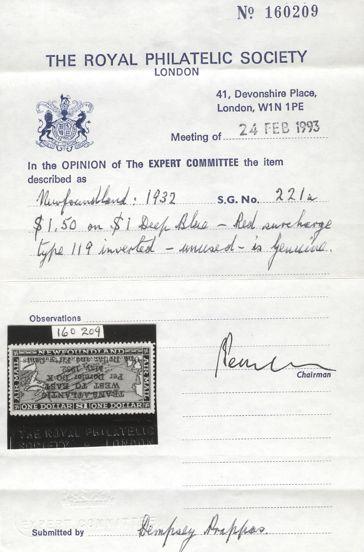 Nº 160209
THE ROYAL PHILATELIC SOCIETY
LONDON
41, Devonshire Place,
London, W1N 1PE
Meeting of 24 FEB 1993
In the OPINION of The EXPERT COMMITTEE the item
described as
Newfoundland: 1932 S.G. No. 221a
$1.50 on $1 Deep Blue - Red surcharge
type 119 inverted - unused - is genuine.
Observations
160 209
NEWFOUNDLAND
AIR MAIL
AIR MAIL
TRANS-ATLANTIC
WEST TO EAST
Per Dornier DO-X
May, 1932
ONE DOLLAR $1 ONE DOLLAR
THE ROYAL PHILATELIC
SOCIETY LONDON
Chairman
Submitted by Dempsey